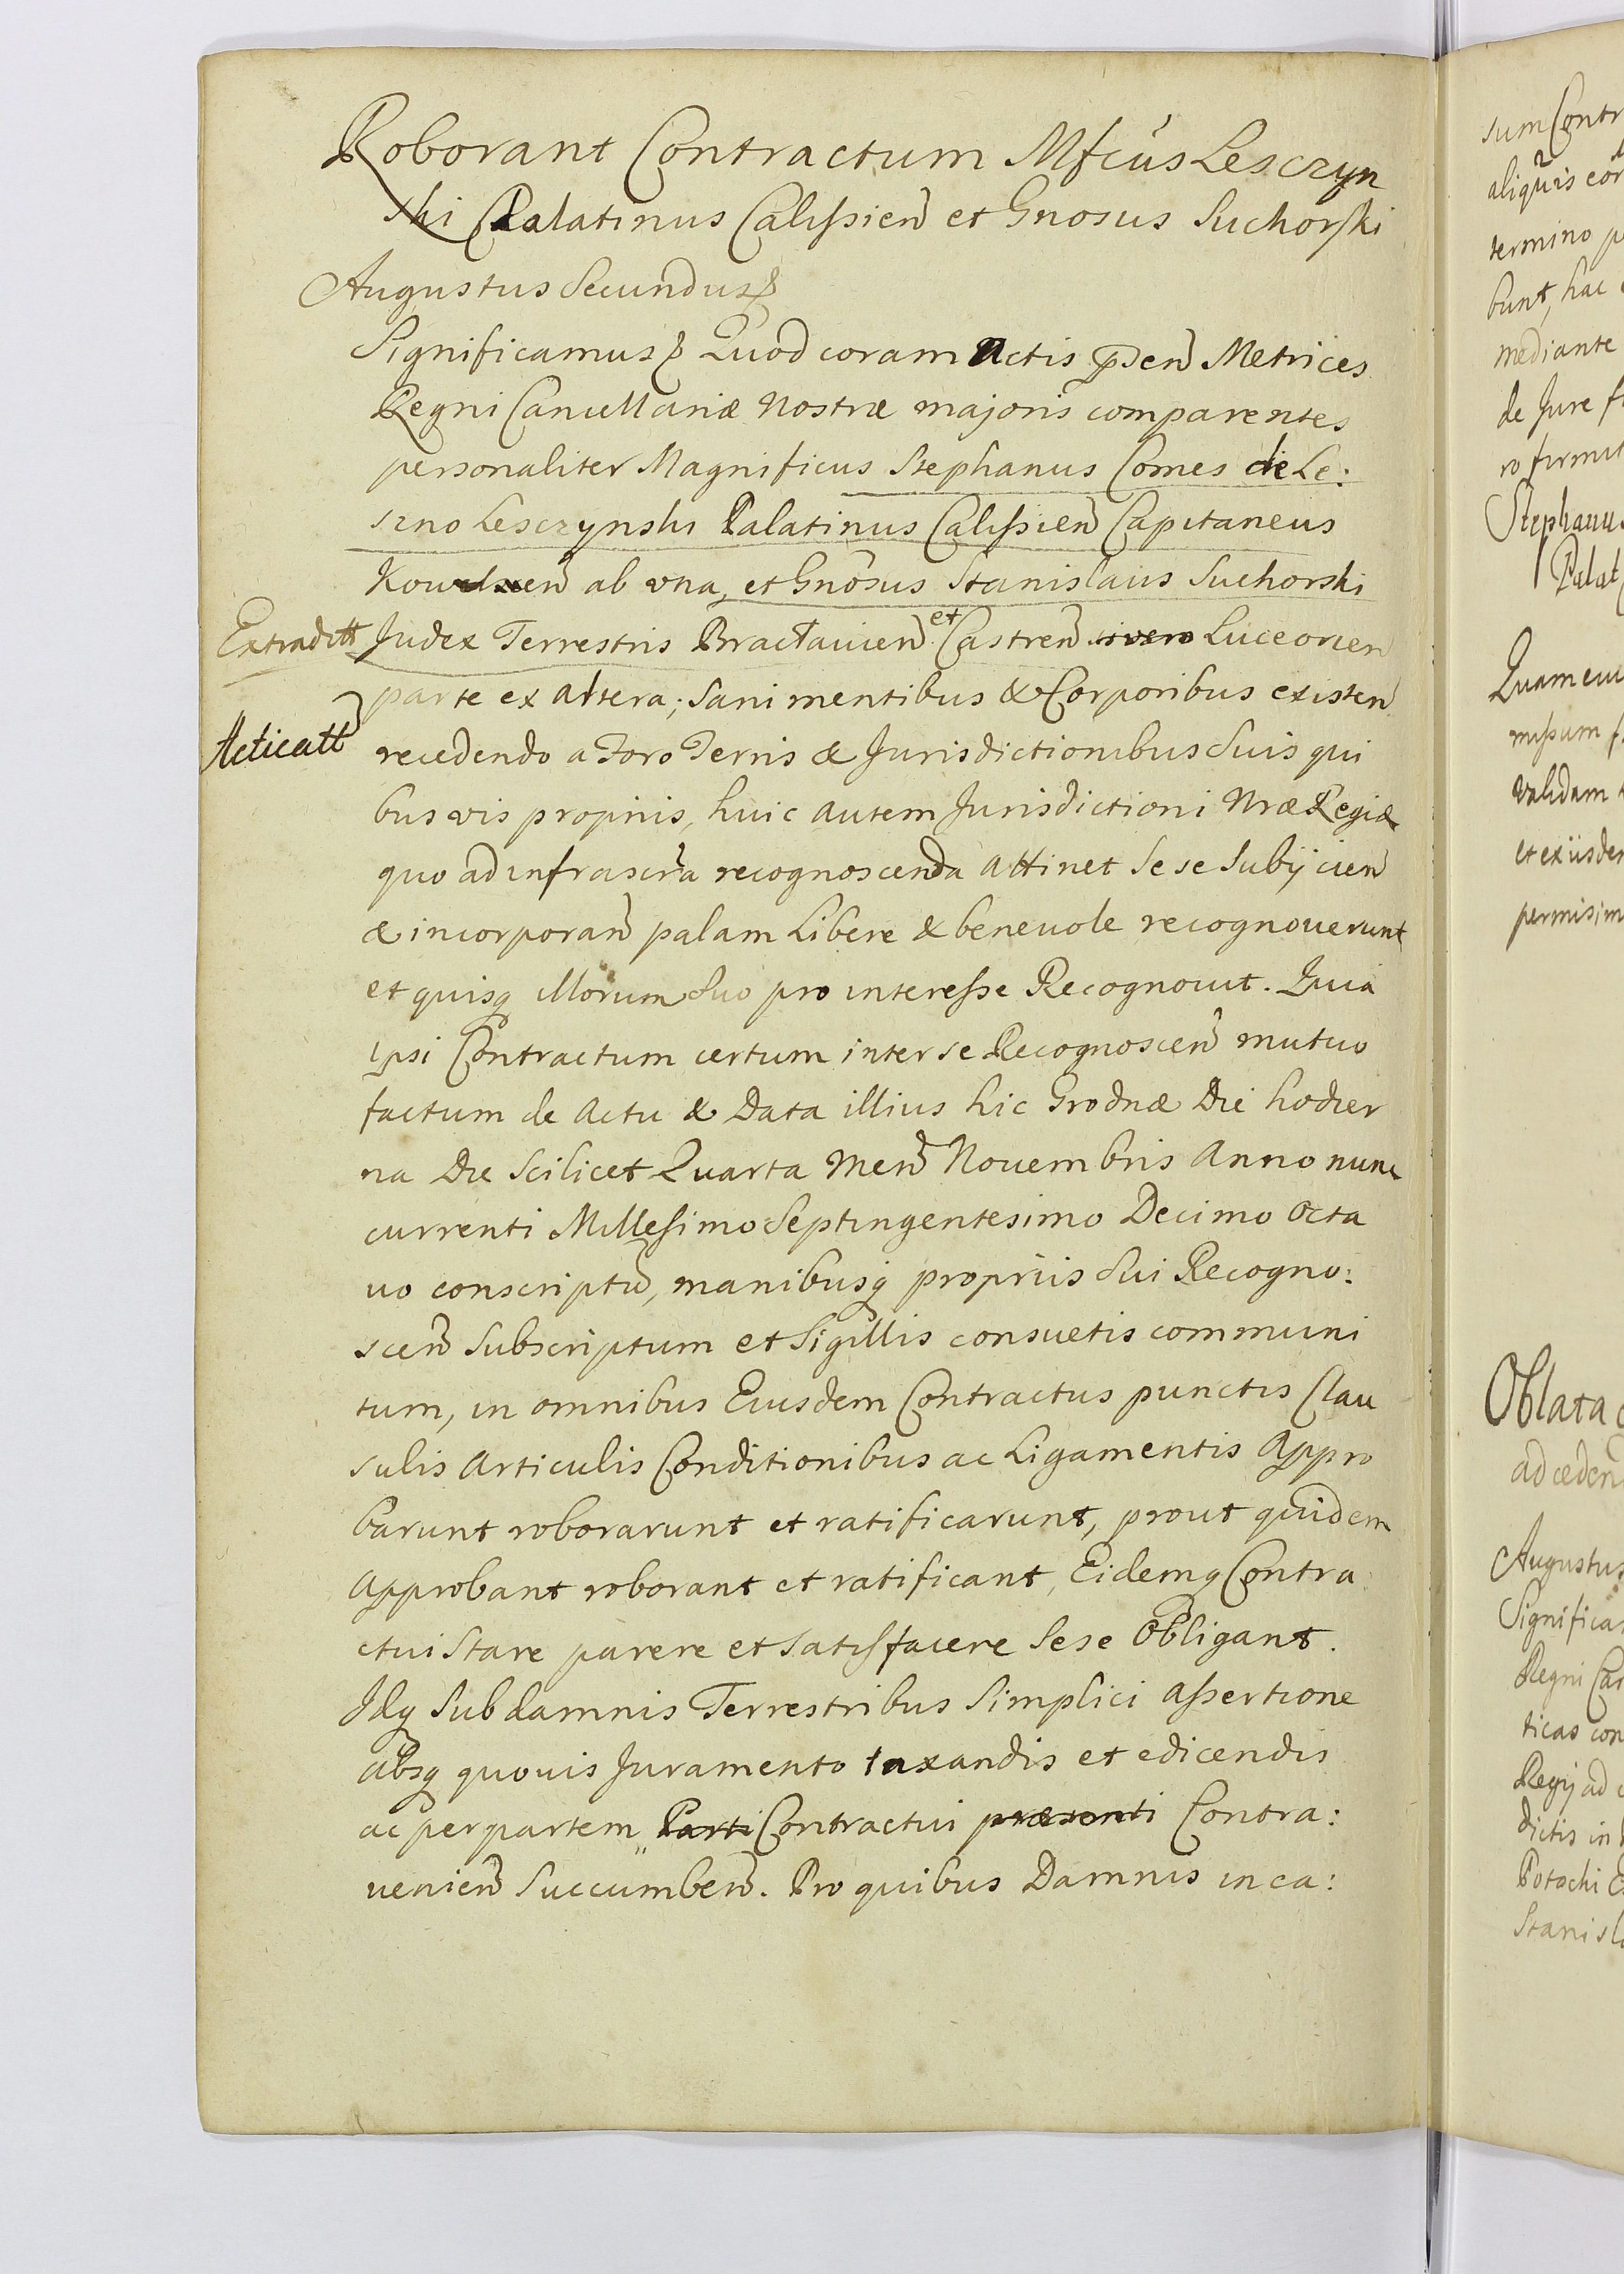 Roborant Contractum Mfcus Lesczyn
ski Palatinus Calissien et Gnosus Suchorski
Augustus Secundus
Significamus Quod coram Actis pnsen Metrices
Regni Cancellariæ Nostræ majoris comparentes
personaliter Magnificus Stephanus Comes de Le:
szno Lesczynski Palatinus Calissien Capitaneus
ab vna, et Gnosus Stanislaus Suchorski
Extraditt
Judex Terrestris Bractavien et Castren Luceorien
parte ex altera; Sani mentibus & Corporibus existen
Acticatt
recedendo a Foro Terris & Jurisdictionibus Suis qui
bus vis propriis, huic autem Jurisdictioni Nræ Regiæ
quo ad infrascra recognoscenda attinet Se se Subijcien
& incorporan palam Libere & beneuole recognouerunt
et quisq illorum Suo pro interesse Recognouit. Quia
ipsi Contractum certum inter se Recognoscen mutuo
factum de Actu & Data illius hic Grodnæ Die hodier
na Die Scilicet Quarta Men Nouembris Anno nunc
currenti Millesimo Septingentesimo Decimo Octa
uo conscriptu, manibusq propriis Sui Recogno:
scen Subscriptum et Sigillis consuetis communi
tum, in omnibus Eiusdem Contractus punctis Clau
sulis Articulis Conditionibus ac Ligamentis Appro
barunt roborarunt et ratificarunt, prout quidem
Approbant roborant et ratificant, Eidemq Contra
ctui Stare parere et Satisfacere Sese Obligant.
Idq Sub damnis Terrestribus Simplici assertione
absq quouis Juramento taxandis et edicendis
ac per partem Parti Contractui præsenti Contra:
uenien Succumben. Pro quibus Damnis in ca:
sum Contr
aliquis eor
termino p
bunt, hac
mediante
de Jure f
ro firmit
Stephanu
Palat
Quam eu
missum f
validam
et ex iisdem
permisim
Oblata
ad ceden
Augustus
Significa
Regni Ca
ticas con
Regij ad
dictis in
Potocki
Stanisl